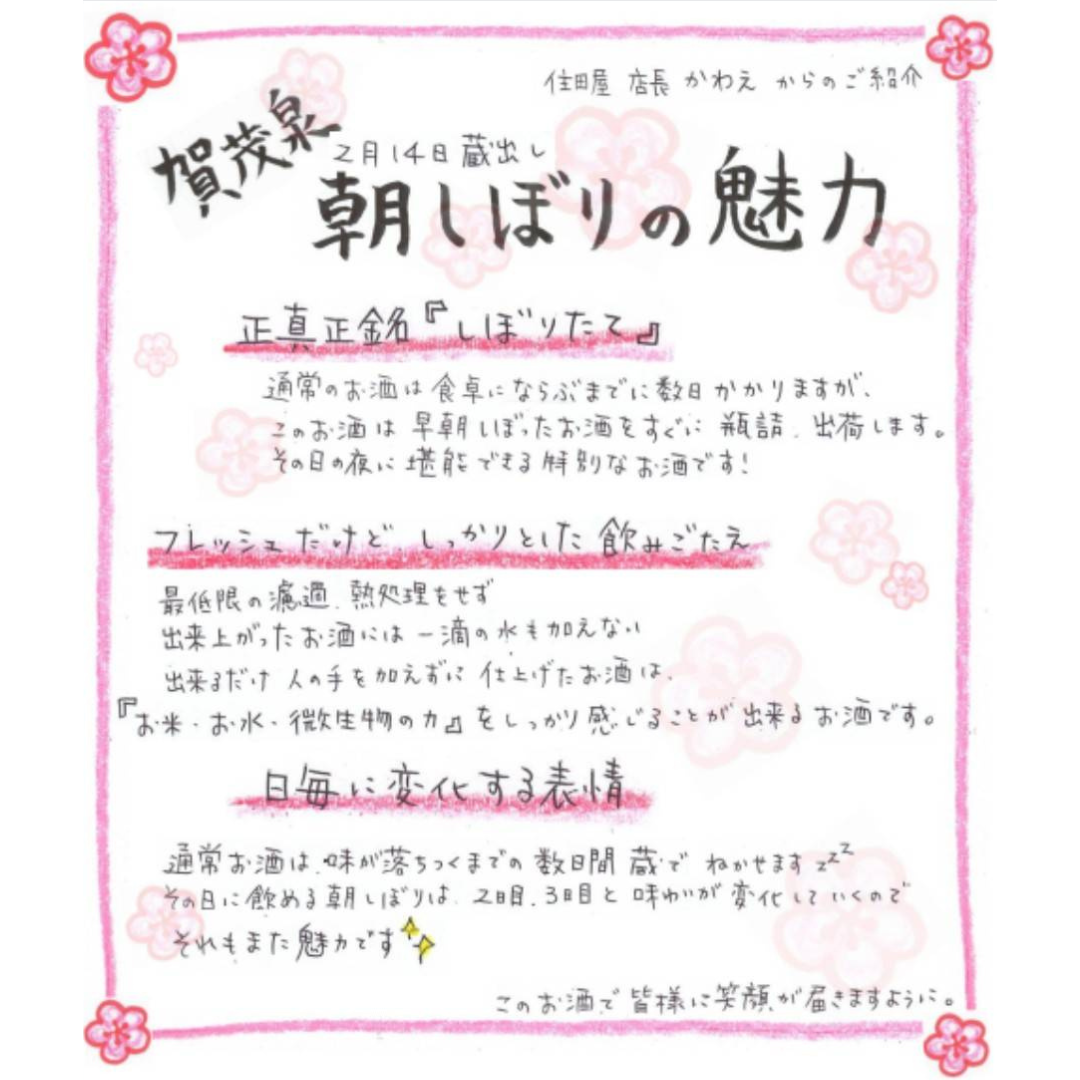 住田屋 店長 かわえ からのご紹介
賀茂泉
2月14日蔵出し
朝しぼりの魅力
正真正銘『しぼりたて』
通常のお酒は食卓にならぶまでに数日かかりますが、
このお酒は早朝しぼったお酒をすぐに瓶詰、出荷します。
その日の夜に堪能できる特別なお酒です!
フレッシュだけど しっかりとした飲みごたえ
最低限の濾過、熱処理をせず
出来上がったお酒には一滴の水も加えない
出来るだけ人の手を加えずに仕上げたお酒は、
『お米・お水・微生物の力』をしっかり感じることが出来るお酒です。
日毎に変化する表情
通常お酒は、味が落ちつくまでの数日間蔵でねかせます zzz
その日に飲める朝しぼりは、2日目、3日目と味わいが変化していくので
それもまた魅力です
このお酒で皆様に笑顔が届きますように。